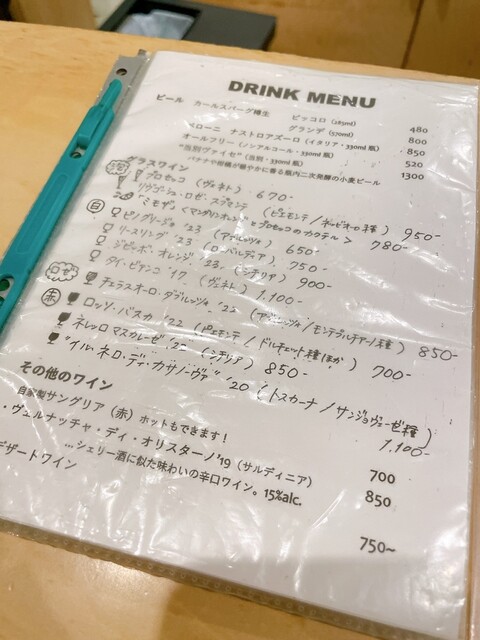 DRINK MENU
ビール カールスバーグ樽生 ピッコロ (285ml) 480
グランデ (570ml) 800
モローニ ナストロアズーロ (イタリア・330ml 瓶) 850
オールフリー (ノンアルコール・330ml 瓶) 520
"当別ヴァイセ" (当別・330ml 瓶) 1300
バナナや柑橘が穏やかに香る瓶内二次発酵の小麦ビール
グラスワイン
泡 プロセッコ (ヴェネト) 670-
リヴォジューロ・ロゼ・スプマンテ (ピエモンテ/ネッビオーロ種) 950-
"ミモザ" <マンダリンオレンジとプロセッコのカクテル> 780-
白 ピノグリージョ '23 (アブルッツォ) 650-
リースリング '23 (ロンバルディア) 750-
ジビッボ・オレンジ '23, (シチリア) 900-
タイ・ビアンコ '17 (ヴェネト) 1,100-
ロゼ チェラスオーロ・ダブルッツォ '22 (アブルッツォ/モンテプルチアーノ種) 850-
赤 ロッソ・バスカ '22 (ピエモンテ/ドルチェット種ほか) 700-
ネレッロ マスカレーゼ '22 (シチリア) 850-
"イル・ネロ・ディ・カサノーヴァ" '20 (トスカーナ/サンジョヴェーゼ種) 1,100-
その他のワイン
自家製サングリア (赤) ホットもできます! 700
・ヴェルナッチャ・ディ・オリスターノ'19 (サルディニア) 850
…シェリー酒に似た味わいの辛口ワイン。15%alc.
デザートワイン 750~